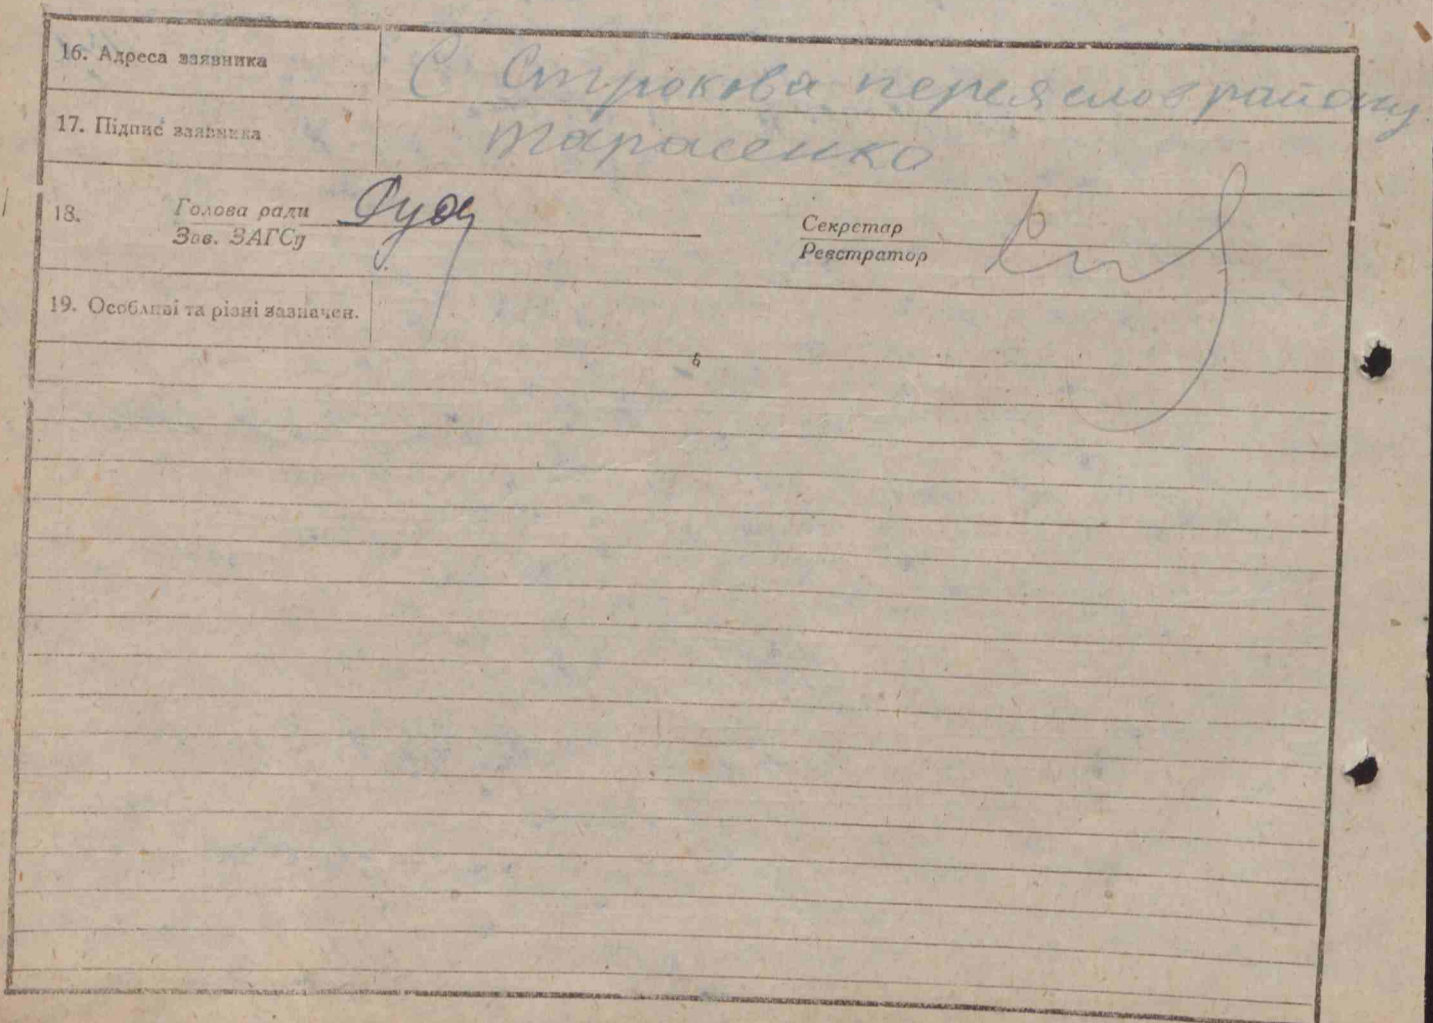 16. Адреса заявника С Строкова переяслов району
17. Підпис заявника Тарасенко
18. Голова ради Секретар
Зав. ЗАГСу Реєстратор
19. Особливі та різні зазначен.